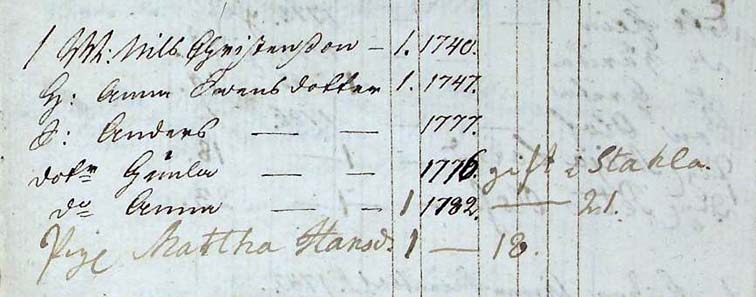 1 M: Nils Christenson - 1. 1740.
H: Anna Svensdotter 1. 1747.
S: Anders — — 1777.
dotr Gunla — — 1776. gift i Stakla.
do Anna — — 1 1782. — 21.
Pige Martha Hansd. 1 — 18.